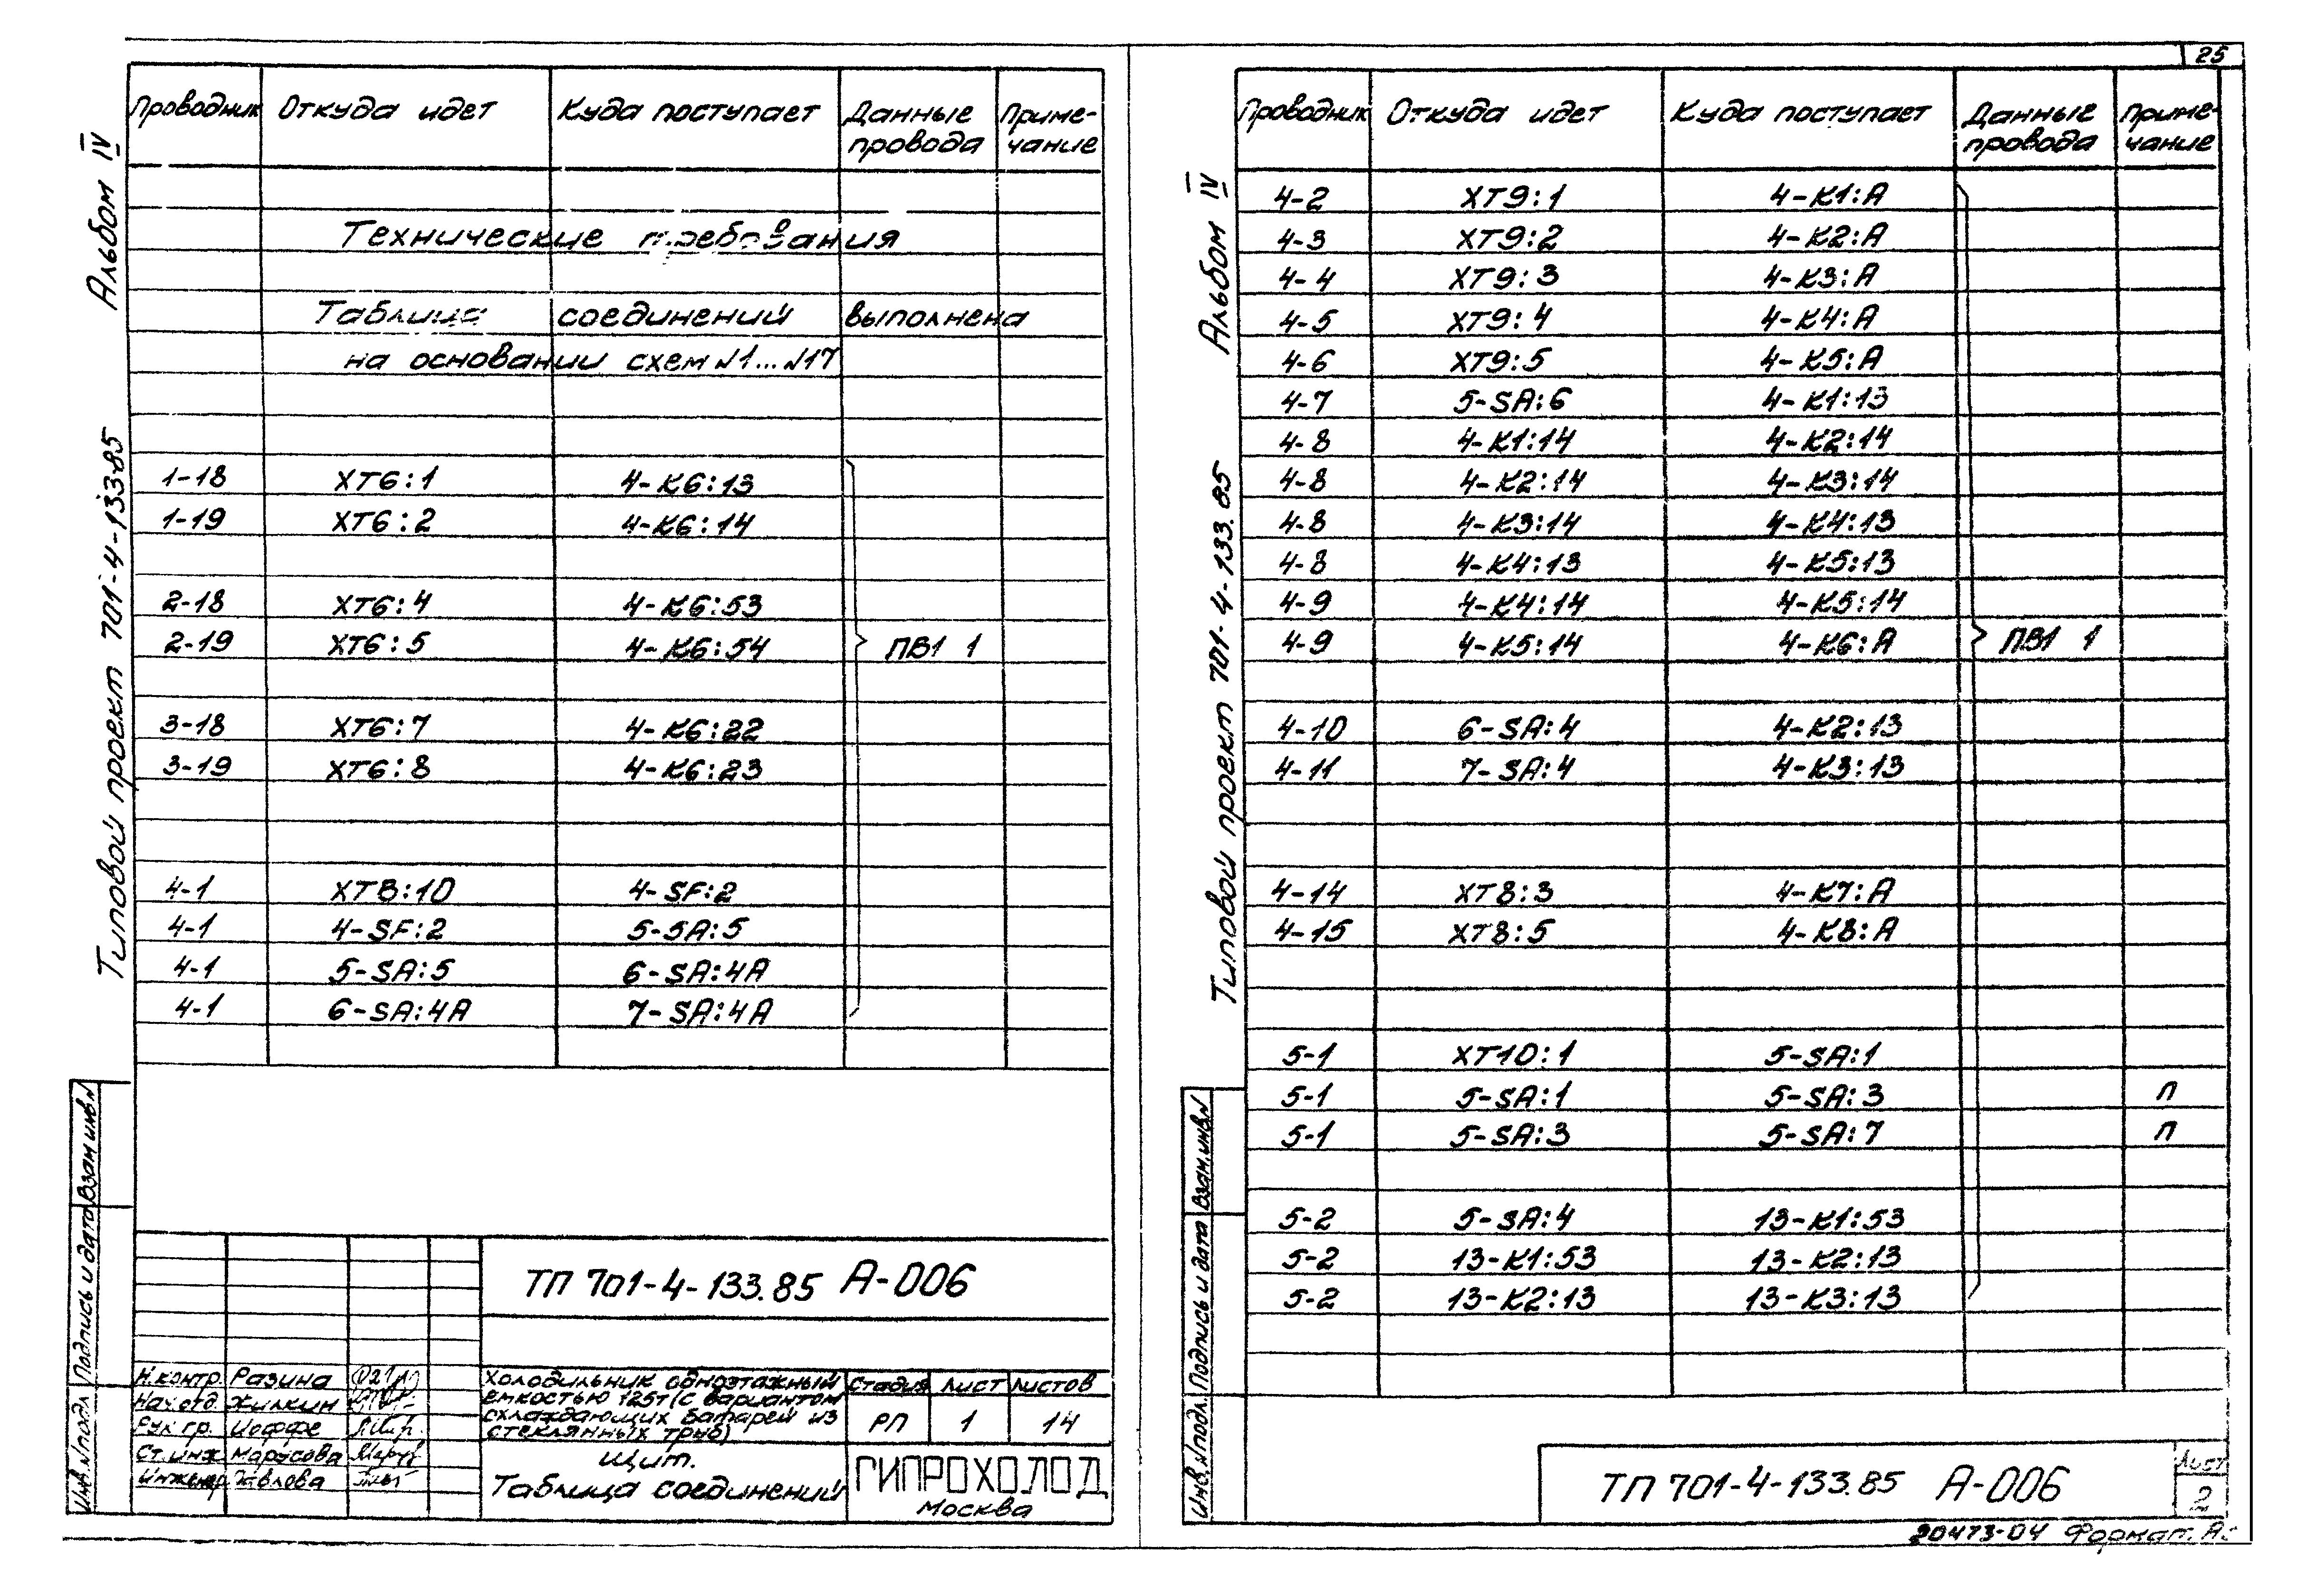 25
Альбом IV
Типовой проект 701-4-133.85
Проводник Откуда идет Куда поступает Данные провода Приме-чание
Технические требования
Таблица соединений выполнена
на основании схем №1...№17
1-18 XT6:1 4-K6:13
1-19 XT6:2 4-K6:14
2-18 XT6:4 4-K6:53
2-19 XT6:5 4-K6:54 ПВ1 1
3-18 XT6:7 4-K6:22
3-19 XT6:8 4-K6:23
4-1 XT8:10 4-SF:2
4-1 4-SF:2 5-SA:5
4-1 5-SA:5 6-SA:4A
4-1 6-SA:4A 7-SA:4A
Инв.№подл. Подпись и дата Взам инв.№
ТП 701-4-133.85 А-006
Н.контр. Разина
Нач.отд. Жилкин
Рук гр. Иоффе
Ст.инж Марусова
Инженер
Холодильник одноэтажный
емкостью 125т (с вариантом
охлаждающих батарей из
стеклянных труб)
Стадия Лист Листов
РП 1 14
Щит.
Таблица соединений
ГИПРОХОЛОД
Москва
Альбом IV
Типовой проект 701-4-133.85
Проводник Откуда идет Куда поступает Данные провода Приме-чание
4-2 XT9:1 4-K1:A
4-3 XT9:2 4-K2:A
4-4 XT9:3 4-K3:A
4-5 XT9:4 4-K4:A
4-6 XT9:5 4-K5:A
4-7 5-SA:6 4-K1:13
4-8 4-K1:14 4-K2:14
4-8 4-K2:14 4-K3:14
4-8 4-K3:14 4-K4:13
4-8 4-K4:13 4-K5:13
4-9 4-K4:14 4-K5:14
4-9 4-K5:14 4-K6:A ПВ1 1
4-10 6-SA:4 4-K2:13
4-11 7-SA:4 4-K3:13
4-14 XT8:3 4-K7:A
4-15 XT8:5 4-K8:A
5-1 XT10:1 5-SA:1
5-1 5-SA:1 5-SA:3 П
5-1 5-SA:3 5-SA:7 П
5-2 5-SA:4 13-K1:53
5-2 13-K1:53 13-K2:13
5-2 13-K2:13 13-K3:13
Инв.№подл. Подпись и дата Взам.инв.№
ТП 701-4-133.85 А-006
Лист
2
20473-04 Формат